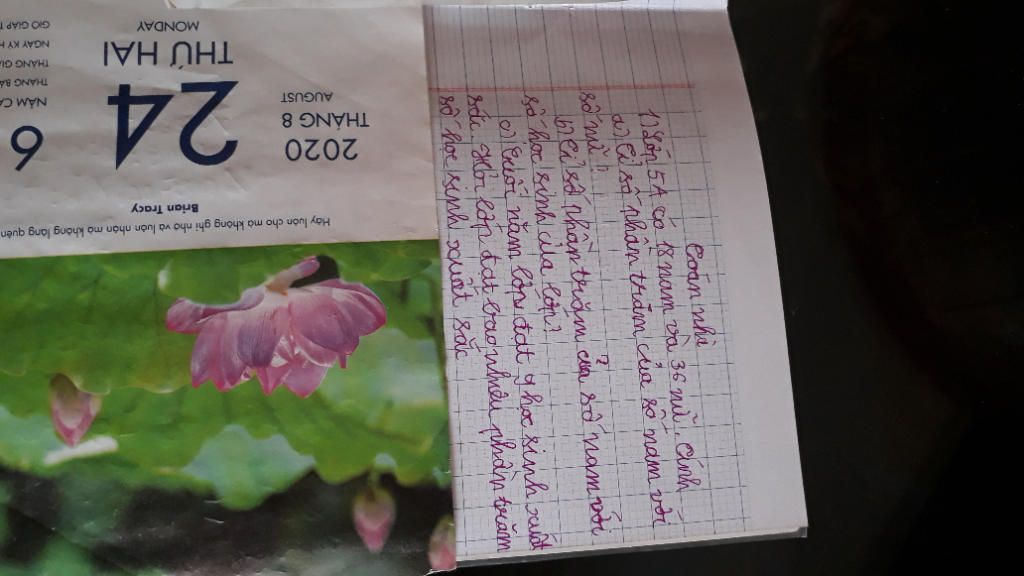 Toán nhà
1) Lớp 5A có 18 nam và 36 nữ. Tính
a) Tỉ số phần trăm của số nam với
số nữ?
b) Tỉ số phần trăm của số nam với
số học sinh của lớp?
c) Cuối năm lớp đạt 9 học sinh xuất
sắc. Hỏi lớp đạt bao nhiêu phần trăm
số học sinh xuất sắc
Hãy luôn cho mà không ghi nhớ và luôn nhận mà không lãng quên
Brian Tracy
2020
THÁNG 8
AUGUST
24
THỨ HAI
MONDAY
6
NĂM CA
THÁNG BẢ
THÁNG GIÁ
NGÀY KỶ H
GIỜ GIÁP T